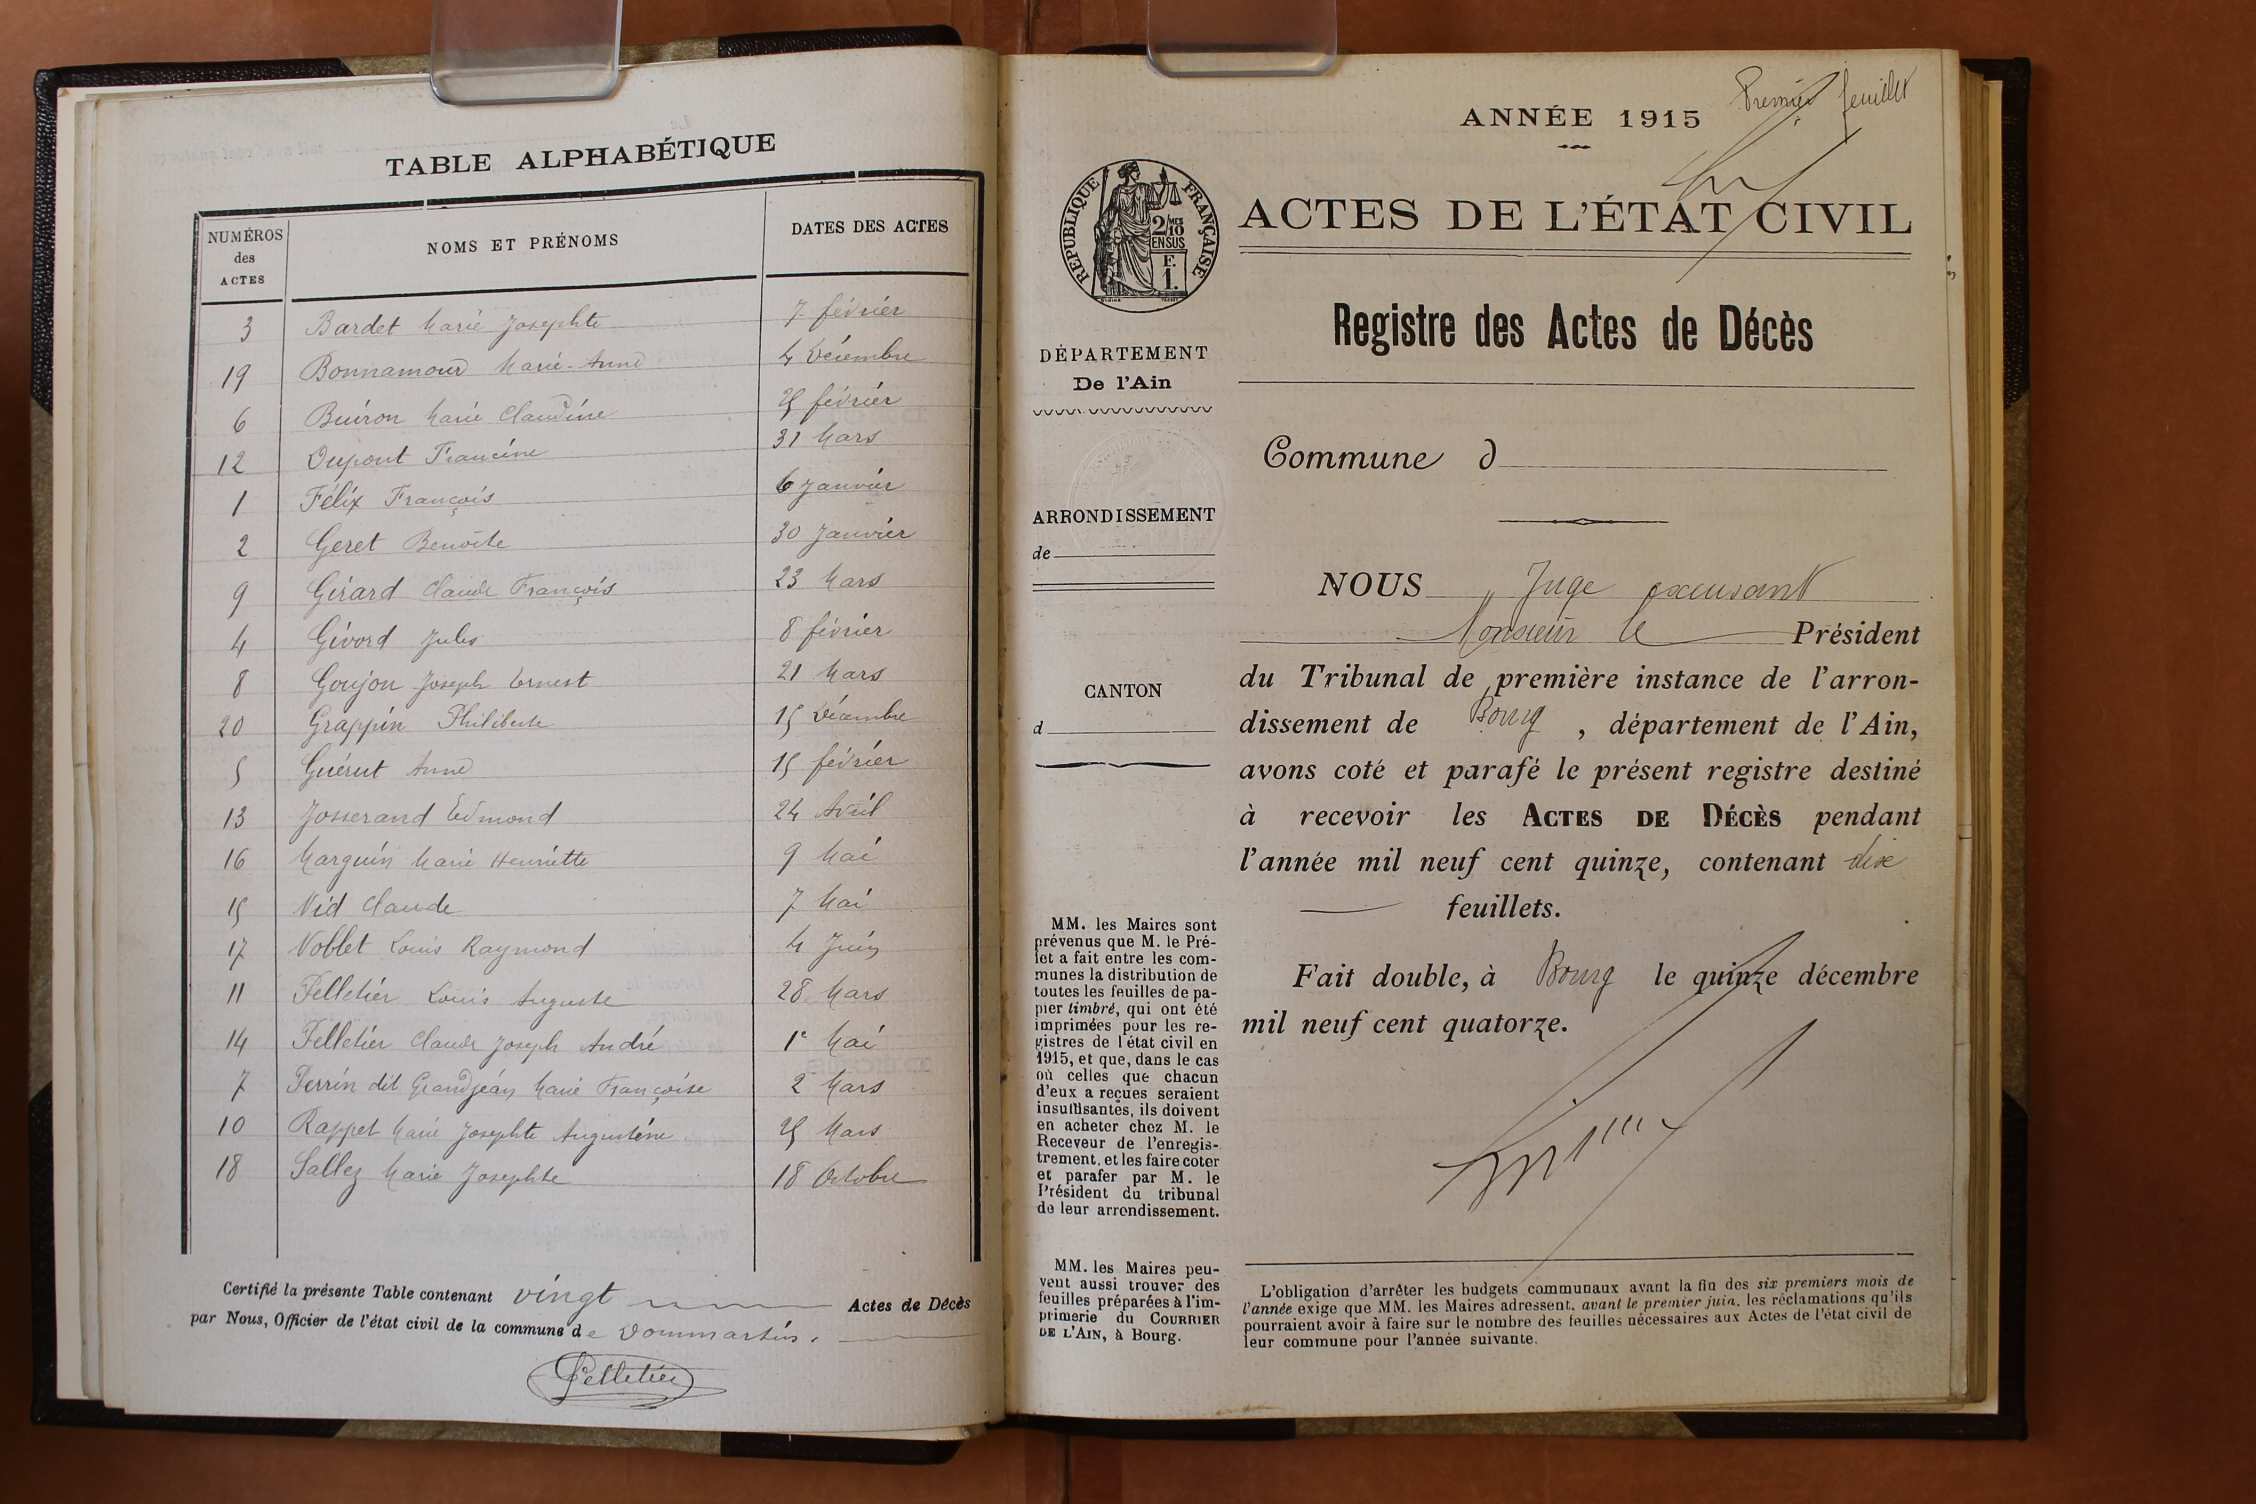 TABLE ALPHABÉTIQUE
NUMÉROS des ACTES
NOMS ET PRÉNOMS
DATES DES ACTES
3 Bardet Marie Josephte 7 février
19 Bonnamour Marie-Anne 4 Décembre
6 Buiron Marie Claudine 25 février
12 Dupont Francine 31 Mars
1 Félix François 6 Janvier
2 Geret Benoîte 30 Janvier
9 Girard Claude François 23 Mars
4 Givord Jules 8 février
8 Goujon Joseph Ernest 21 Mars
20 Grappin Philiberte 15 Décembre
5 Guérut Anne 15 février
13 Josserand Edmond 24 Avril
16 Marguin Marie Henriette 9 Mai
15 Nid Claude 7 Mai
17 Noblet Louis Raymond 4 Juin
11 Pelletier Louis Auguste 28 Mars
14 Pelletier Claude Joseph André 1e Mai
7 Perrin dit Grandjean Marie Françoise 2 Mars
10 Rappet Marie Josephte Augustine 25 Mars
18 Sallez Marie Josephte 18 Octobre
Certifié la présente Table contenant vingt Actes de Décès
par Nous, Officier de l'état civil de la commune de Dommartin.
Pelletier
Premier feuillet
ANNÉE 1915
RÉPUBLIQUE FRANÇAISE
2/10 MES
EN SUS
F.
1.
ACTES DE L'ÉTAT CIVIL
Registre des Actes de Décès
DÉPARTEMENT
De l'Ain
Commune d
ARRONDISSEMENT
de
CANTON
d
NOUS Juge excusant
Monsieur le Président
du Tribunal de première instance de l'arron-
dissement de Bourg, département de l'Ain,
avons coté et parafé le présent registre destiné
à recevoir les ACTES DE DÉCÈS pendant
l'année mil neuf cent quinze, contenant dix
feuillets.
Fait double, à Bourg le quinze décembre
mil neuf cent quatorze.
MM. les Maires sont
prévenus que M. le Pré-
fet a fait entre les com-
munes la distribution de
toutes les feuilles de pa-
pier timbré, qui ont été
imprimées pour les re-
gistres de l'état civil en
1915, et que, dans le cas
où celles que chacun
d'eux a reçues seraient
insuffisantes, ils doivent
en acheter chez M. le
Receveur de l'enregis-
trement, et les faire coter
et parafer par M. le
Président du tribunal
de leur arrondissement.
MM. les Maires peu-
vent aussi trouver des
feuilles préparées à l'im-
primerie du COURRIER
DE L'AIN, à Bourg.
L'obligation d'arrêter les budgets communaux avant la fin des six premiers mois de
l'année exige que MM. les Maires adressent, avant le premier juin, les réclamations qu'ils
pourraient avoir à faire sur le nombre des feuilles nécessaires aux Actes de l'état civil de
leur commune pour l'année suivante.